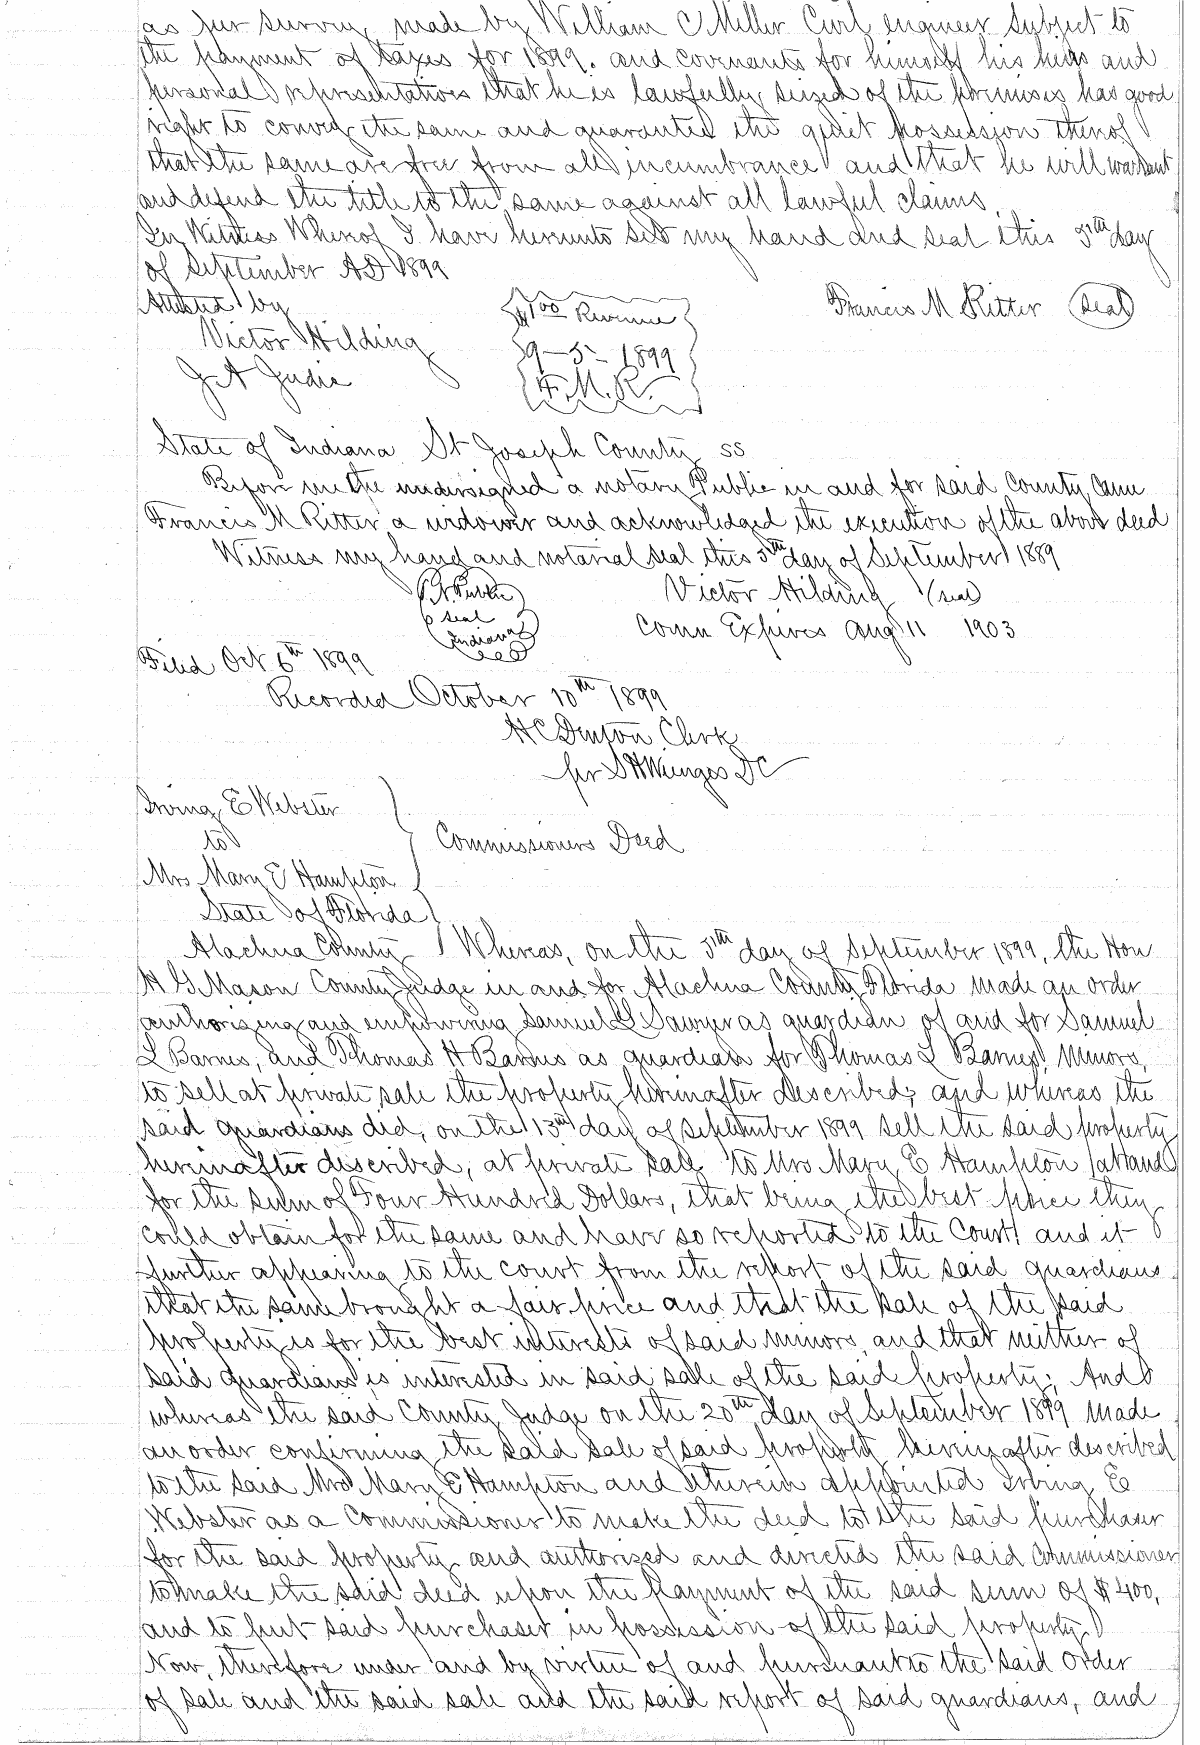 as per survey, made by William C Miller Civil engineer Subject to
the payment of taxes for 1899. and covenants for himself his heirs and
personal representatives that he is lawfully seized of the premises has good
right to convey the same and guarantees the quiet possession thereof
that the same are free from all incumbrance and that he will warrant
and defend the title to the same against all lawful claims
In Witness Whereof I have hereunto set my hand and seal this 5th day
of September AD 1899
Attested by
Victor Hilding
J A Judie
$1 00 Revenue
9-5- 1899
F. M. R.
Francis M Ritter (Seal)
State of Indiana St Joseph County ss
Before me the undersigned a notary Public in and for said County Came
Francis M Ritter a widower and acknowledged the execution of the above deed
Witness my hand and notarial seal this 5th day of September 1889
N. Public
Seal
Indiana
Victor Hilding (seal)
Comn Expires Aug 11 1903
Filed Oct 6th 1899
Recorded October 10th 1899
H C Denton Clerk
per S H Wienges DC
Irving E Webster
to
Mrs Mary E Hampton
Commissioners Deed
State of Florida
Alachua County Whereas, on the 5th day of September 1899, the Hon
H G Mason County Judge in and for Alachua County Florida made an order
authorizing and empowering Samuel L Sawyer as guardian of and for Samuel
L Barnes, and Thomas H Barnes as guardian for Thomas L Barnes, Minors,
to sell at private sale the property hereinafter described; and whereas the
said guardians did, on the 13th day of September 1899 sell the said property
hereinafter described, at private sale to Mrs Mary E Hampton at and
for the sum of Four Hundred Dollars, that being the best price they
could obtain for the same and have so reported to the Court and it
further appearing to the court from the report of the said guardians
that the same brought a fair price and that the sale of the said
property is for the best interests of said minors, and that neither of
said guardians is interested in said sale of the said property; And
whereas the said County Judge on the 20th day of September 1899 made
an order confirming the said sale of said property hereinafter described
to the said Mrs Mary E Hampton and therein appointed Irving E
Webster as a Commissioner to make the deed to the said purchaser
for the said property and authorized and directed the said Commissioner
to make the said deed upon the payment of the said sum of $400,
and to put said purchaser in possession of the said property.
Now, therefore under and by virtue of and pursuant to the said Order
of sale and the said sale and the said report of said guardians, and